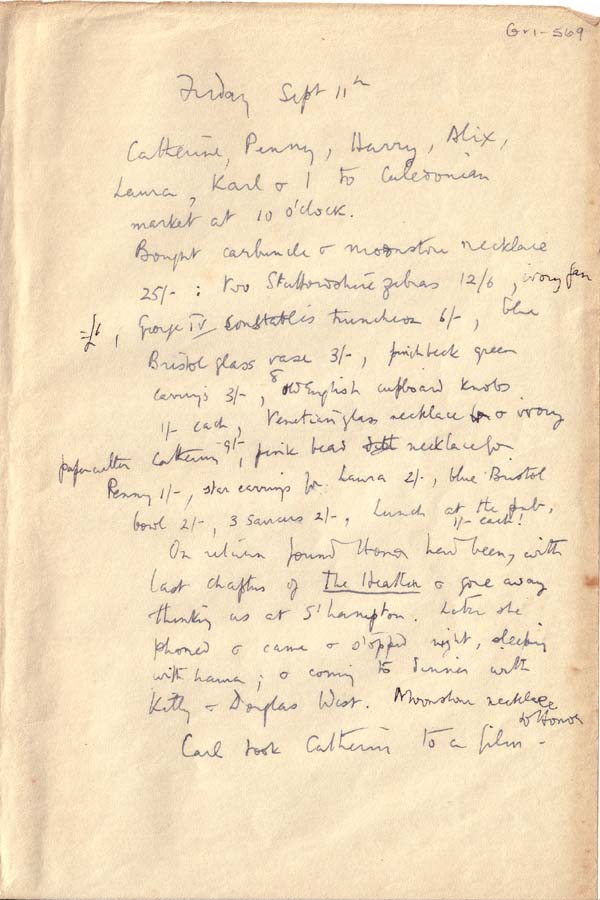 Gv1-569
Friday Sept 11th
Catherine, Penny, Harry, Alix,
Laura, Karl & I to Caledonian
market at 10 o'clock.
Bought carbuncle & moonstone necklace
25/- : two Staffordshire zebras 12/6, ivory fan
, George IV constable's truncheon 6/-, blue
Bristol glass vase 3/-, pinchbeck green
earrings 3/-, 8 old English cupboard knobs
1/- each, Venetian glass necklace & ivory
papercutter Catherine 9/-, pink bead necklace for
Penny 1/-, star earrings for Laura 2/-, blue Bristol
bowl 2/-, 3 saucers 2/-, Lunch at the pub,
1/- each!
On return found Honor had been, with
last chapters of The Heathen & gone away
thinking us at S'hampton. Later she
phoned & came & stopped night, sleeping
with Laura; & coming to dinner with
Kitty & Douglas West. Moonstone necklace
to Honor
Carl took Catherine to a film -